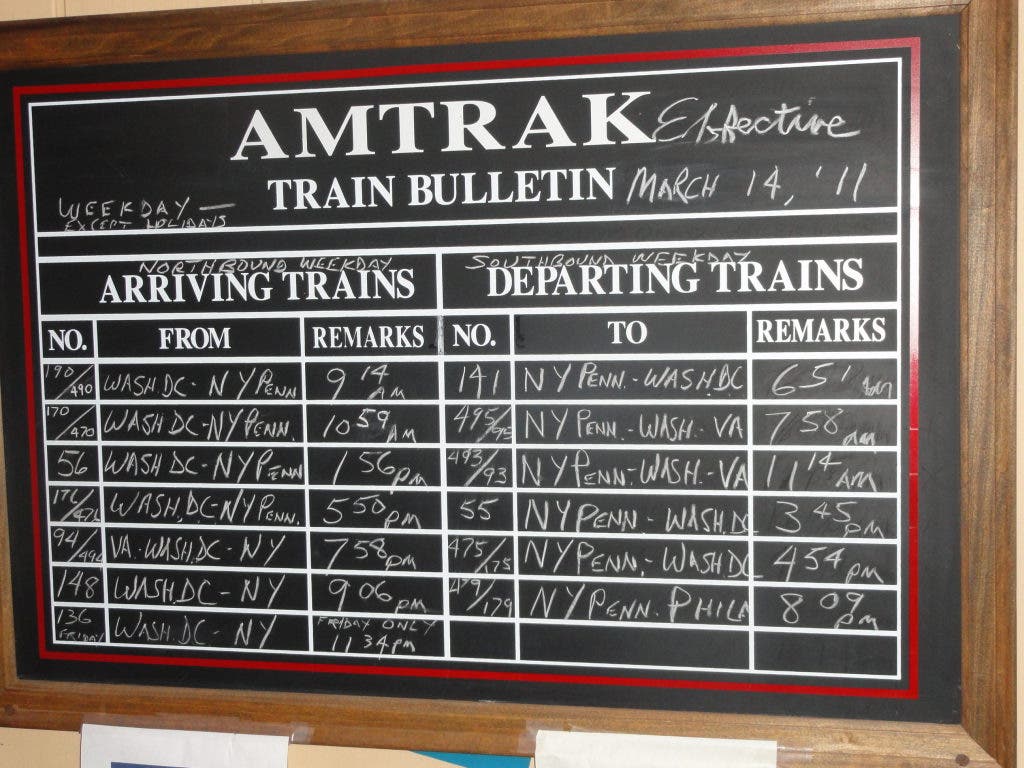 AMTRAK Effective
TRAIN BULLETIN MARCH 14, '11
WEEKDAY —
EXCEPT HOLIDAYS
NORTHBOUND WEEKDAY SOUTHBOUND WEEKDAY
ARRIVING TRAINS DEPARTING TRAINS
NO. FROM REMARKS NO. TO REMARKS
190/490 WASH.DC - NY PENN 9 14 AM 141 NY PENN. - WASH.DC 6 51 am
170/470 WASH DC - NY PENN. 10 59 AM 495/95 NY PENN. - WASH - VA 7 58 am
56 WASH DC - NY PENN 1 56 pm 493/93 NY PENN. WASH. - VA 11 14 AM
176/476 WASH, DC - NY PENN. 5 50 pm 55 NY PENN - WASH.DC 3 45 pm
94/494 VA - WASH, DC - NY 7 58 pm 475/175 NY PENN. - WASH DC 4 54 pm
148 WASH, DC - NY 9 06 pm 479/179 NY PENN. PHILA 8 09 pm
136 FRIDAY WASH. DC - NY FRIDAY ONLY 11 34 pm